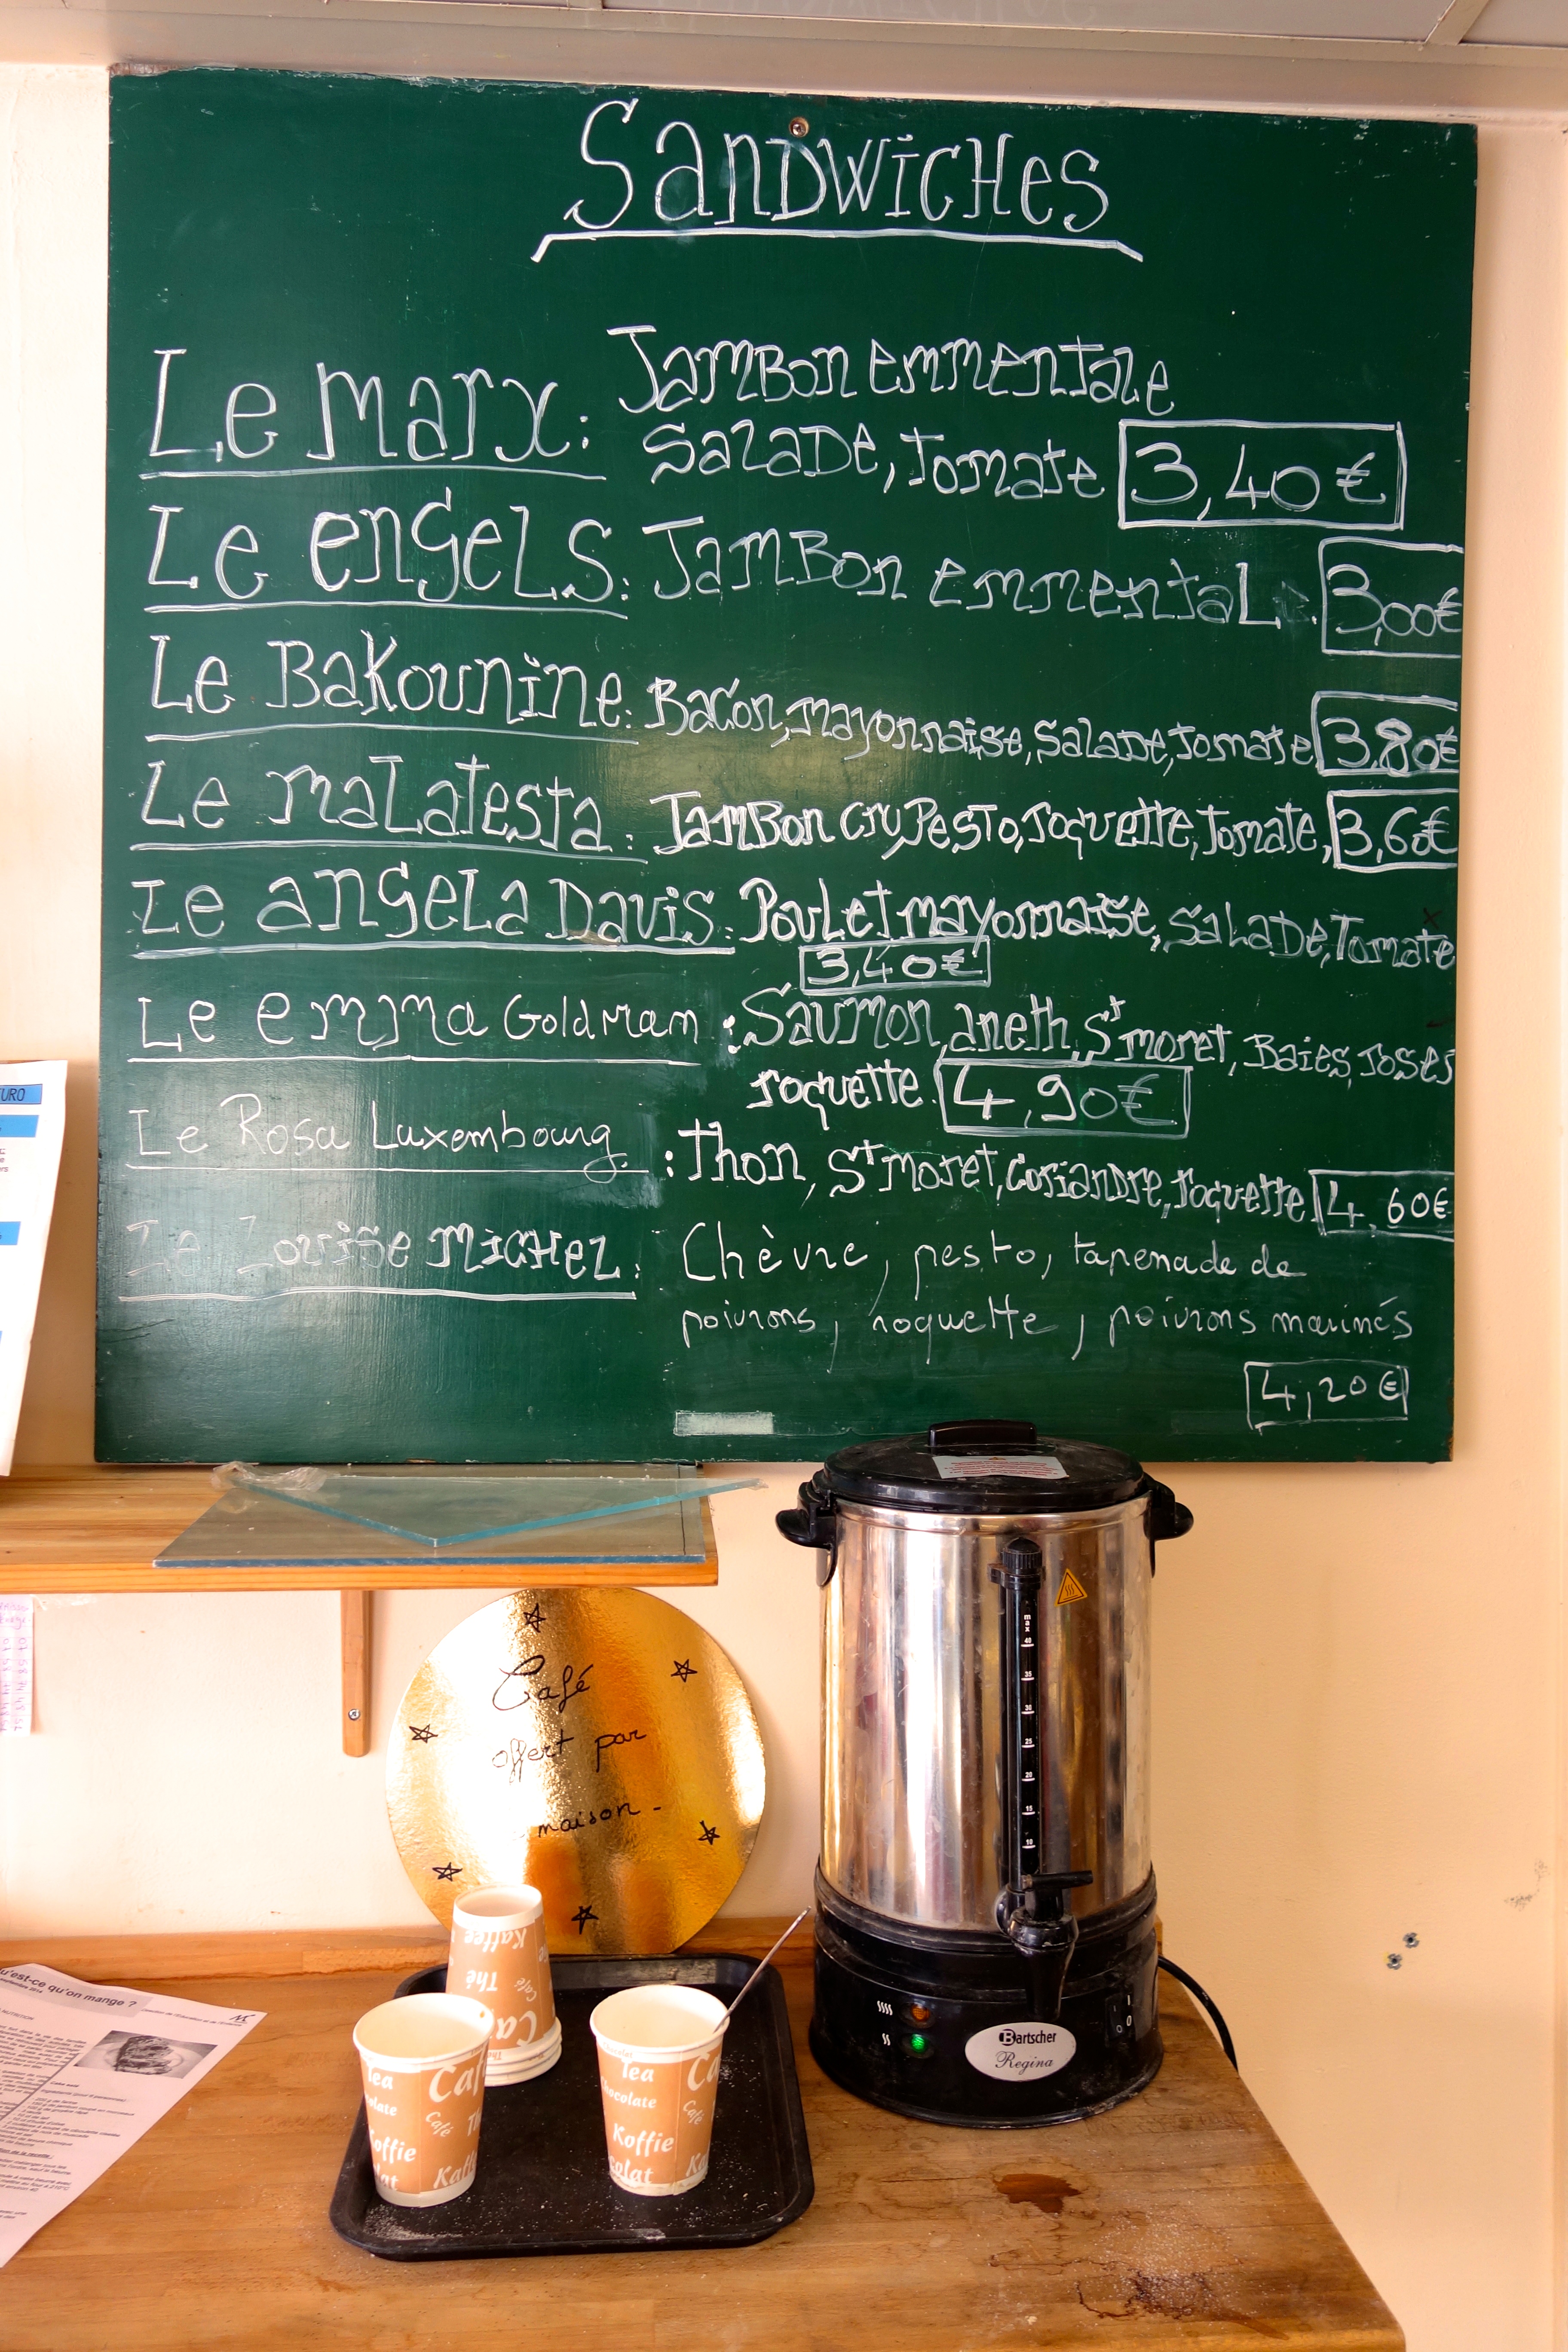 SanDWiCHes
Le marx: JamBon emmentale
SalaDe, Tomate 3,40€
Le engels: JamBon emmental: 3,00€
Le BaKounine: Bacon, mayonnaise, Salade, tomate 3,80€
Le malatesta: JamBon cru, Pesto, roquette, tomate, 3,60€
Le angela Davis: Poulet mayonnaise, SalaDe, Tomate
3,40€
Le emma Goldman: Saumon, aneth, St moret, Baies roses
roquette. 4,90€
Le Rosa Luxembourg: Thon, St moret, coriandre, roquette 4,60€
Le Louise MicHel: Chèvre, pesto, tapenade de
poivrons, roquette, poivrons marinés
4,20€
URO
Café
offert par
maison -
max
40
35
30
25
20
15
10
Bartscher
Regina
I
0
Kaffee
Thé
Café
Ca
Tea
Caf
olate
Café
Th
offie
Kaff
lat
Chocolat
Tea
Ca
hocolate
Café
Koffie
olat
Ka
u'est-ce qu'on mange ?